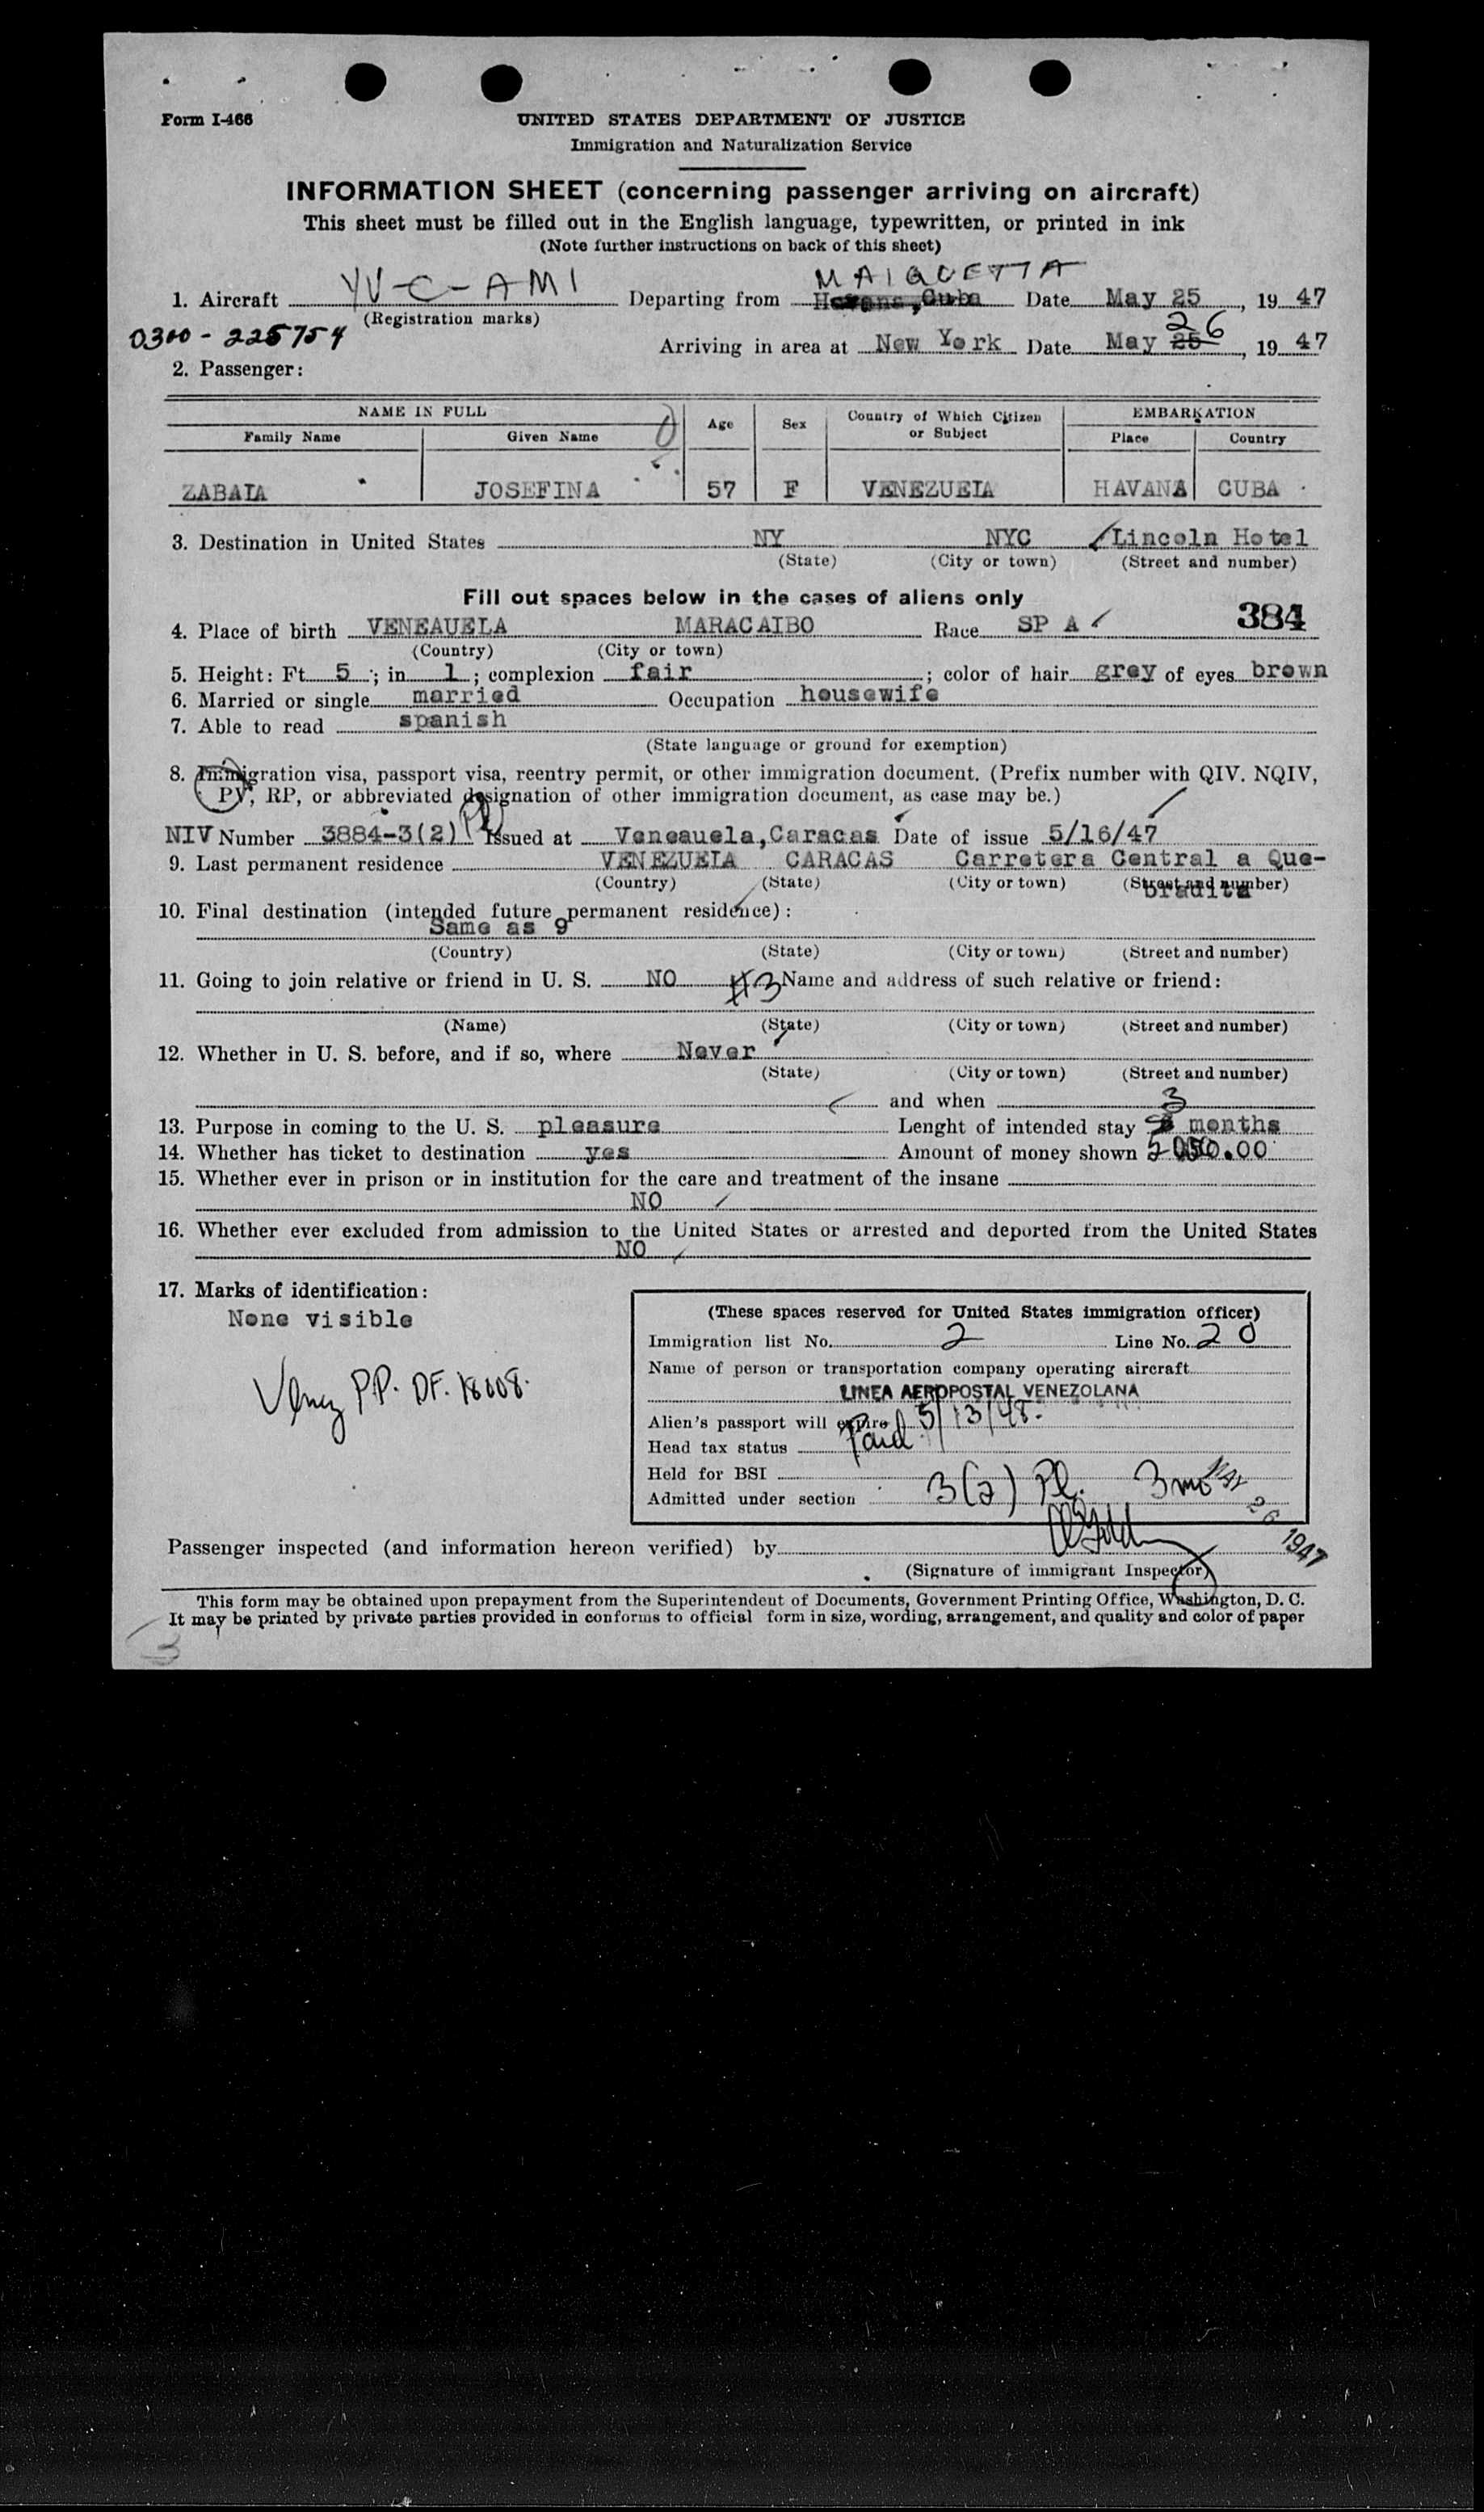 Form I-466
UNITED STATES DEPARTMENT OF JUSTICE
Immigration and Naturalization Service
INFORMATION SHEET (concerning passenger arriving on aircraft)
This sheet must be filled out in the English language, typewritten, or printed in ink
(Note further instructions on back of this sheet)
MAIQUETIA
1. Aircraft YV-C-AMI Departing from Havana, Cuba Date May 25, 19 47
(Registration marks)
0300-225754
26
Arriving in area at New York Date May 25, 19 47
2. Passenger:
NAME IN FULL Age Sex Country of Which Citizen or Subject EMBARKATION
Family Name Given Name Place Country
ZABALA JOSEFINA 57 F VENEZUELA HAVANA CUBA
3. Destination in United States NY NYC Lincoln Hotel
(State) (City or town) (Street and number)
Fill out spaces below in the cases of aliens only
384
4. Place of birth VENEAUELA MARACAIBO Race SP A
(Country) (City or town)
5. Height: Ft. 5; in 1; complexion fair; color of hair grey of eyes brown
6. Married or single married Occupation housewife
7. Able to read spanish
(State language or ground for exemption)
8. Immigration visa, passport visa, reentry permit, or other immigration document. (Prefix number with QIV. NQIV,
PV, RP, or abbreviated designation of other immigration document, as case may be.)
NIV Number 3884-3(2) Issued at Veneauela, Caracas Date of issue 5/16/47
9. Last permanent residence VENEZUELA CARACAS Carretera Central a Que-
(Country) (State) (City or town) (Street and number)
bradita
10. Final destination (intended future permanent residence):
Same as 9
(Country) (State) (City or town) (Street and number)
11. Going to join relative or friend in U. S. NO #3 Name and address of such relative or friend:
(Name) (State) (City or town) (Street and number)
12. Whether in U. S. before, and if so, where Never
(State) (City or town) (Street and number)
and when
13. Purpose in coming to the U. S. pleasure Lenght of intended stay 3 months
14. Whether has ticket to destination yes Amount of money shown
15. Whether ever in prison or in institution for the care and treatment of the insane
NO
16. Whether ever excluded from admission to the United States or arrested and deported from the United States
NO
17. Marks of identification:
None visible
Venez PP. DF. 18008.
(These spaces reserved for United States immigration officer)
Immigration list No. 2 Line No. 20
Name of person or transportation company operating aircraft
LINEA AEROPOSTAL VENEZOLANA
Alien's passport will expire 5/13/48.
Head tax status Paid
Held for BSI
Admitted under section 3(2) Pl. 3 mo
MAY 26 1947
Passenger inspected (and information hereon verified) by
(Signature of immigrant Inspector)
This form may be obtained upon prepayment from the Superintendent of Documents, Government Printing Office, Washington, D. C.
It may be printed by private parties provided in conforms to official form in size, wording, arrangement, and quality and color of paper
3